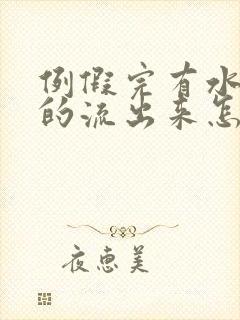 例假完有水
的流出来怎
夜惠美